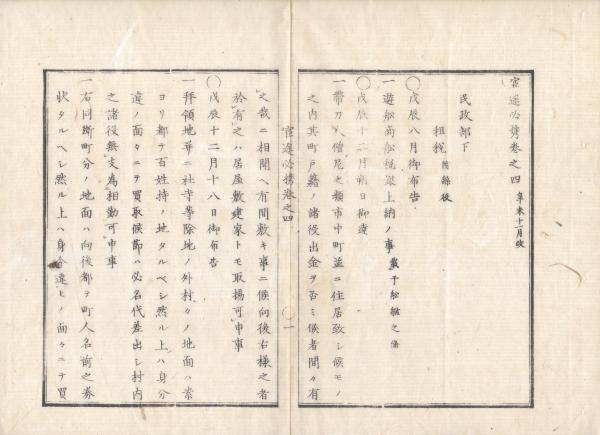 官途必携巻之四 辛未十二月改
民政部下
租税 附録後
〇戊辰八月御布告
一遊船商船税銀上納ノ事 載于船艦之條
〇戊辰十二月朔日御達
一帯刀人僧尼之類市中町並ニ住居致シ候モノ
之内其町戸籍ノ諸役出金ヲ否ミ候者間々有
之哉ニ相聞ヘ有間敷キ事ニ候向後右様之者
於有之ハ居屋敷建家トモ取揚可申事
〇戊辰十二月十八日御布告
一拝領地並ニ社寺等除地ノ外村々ノ地面ハ素
ヨリ都テ百姓持ノ地タルベシ然ル上ハ身分
違ノ面々ニテ買取候節ハ必名代差出シ村内
之諸役無支為相勤可申事
一右同断町分ノ地面ハ向後都テ町人名前之券
状タルベシ然ル上ハ身分違ヒノ面々ニテ買
官途必携巻之四
〇一